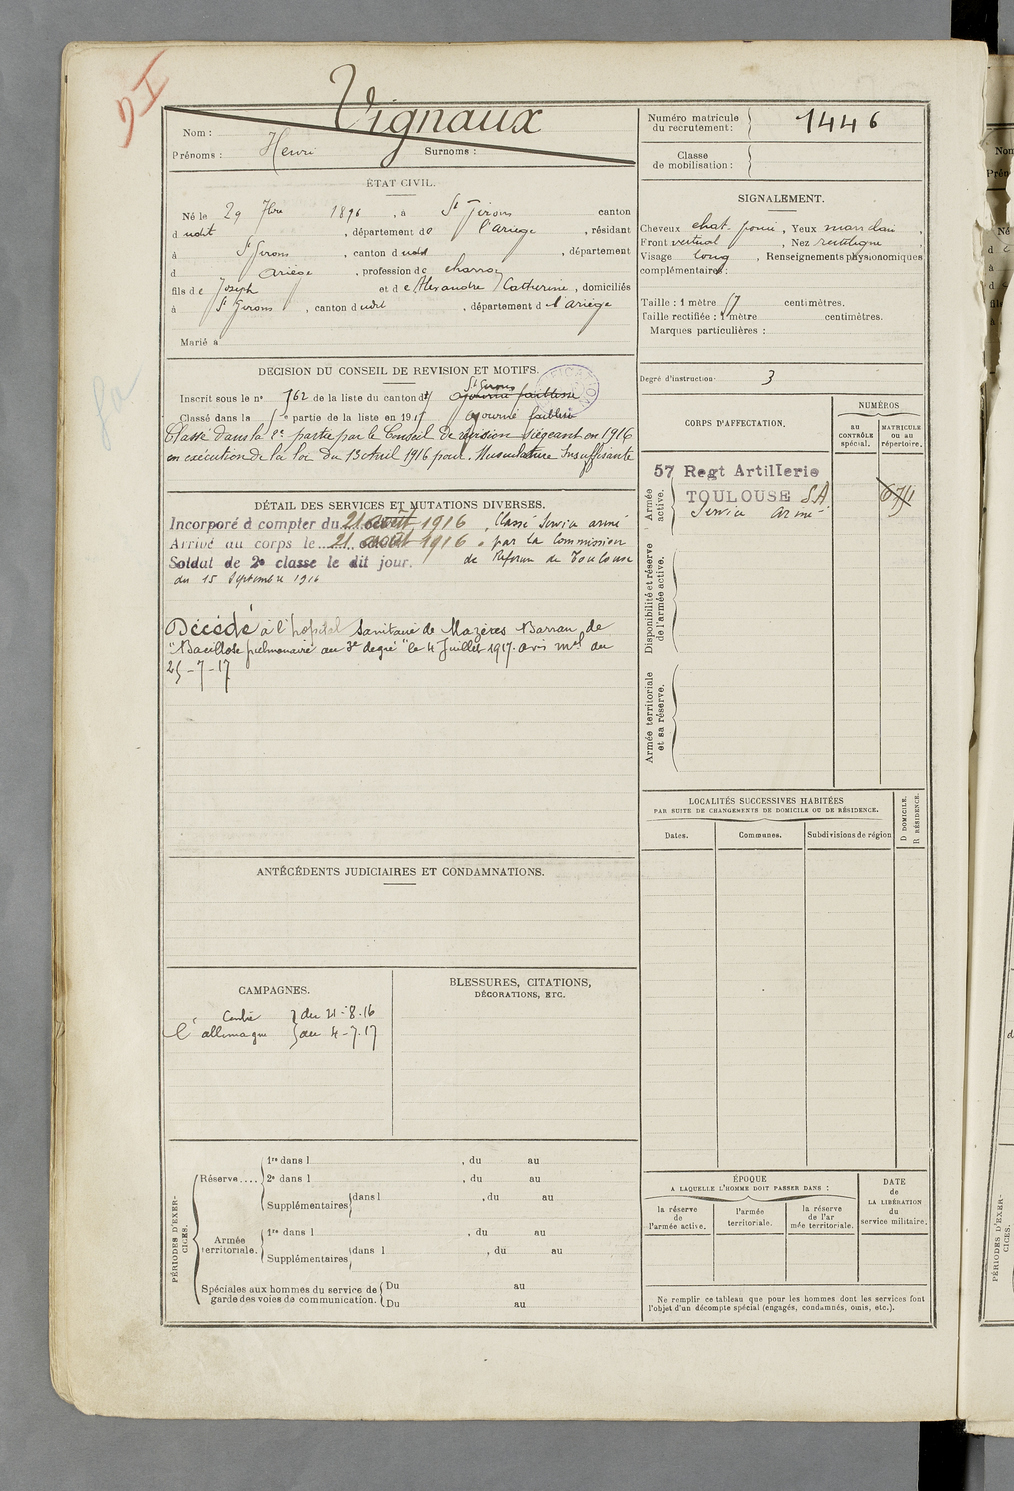 DI
Vignaux
Nom :
Prénoms : Henri Surnoms :
Numéro matricule du recrutement : 1446
Classe de mobilisation :
ÉTAT CIVIL.
Né le 29 7bre 1896, à St Girons canton
dudit, département de l'ariège, résidant
à St Girons, canton dudit, département
d Ariège, profession de charron
fils de Joseph et de Alexandre Catherine, domiciliés
à St Girons, canton dudit, département de l'ariège
Marié à
SIGNALEMENT.
Cheveux chat. foncé, Yeux
Front vertical, Nez rectiligne,
Visage long, Renseignements physionomiques
complémentaires :
Taille : 1 mètre 57 centimètres.
Taille rectifiée : 1 mètre centimètres.
Marques particulières :
Degré d'instruction : 3
DÉCISION DU CONSEIL DE REVISION ET MOTIFS.
St Girons
Inscrit sous le no 762 de la liste du canton de ajourné faiblesse
Classé dans la 5e partie de la liste en 1915 ajourné faiblesse
Classé dans la 1e partie par le Conseil de révision siégeant en 1916
en exécution de la loi du 13 Avril 1916 pour. Musculature Insuffisante
CORPS D'AFFECTATION.
NUMÉROS
au CONTRÔLE spécial.
MATRICULE ou au répertoire.
Armée active.
57 Regt Artillerie
TOULOUSE S.A.
Service armé
Disponibilité et réserve de l'armée active.
Armée territoriale et sa réserve.
DÉTAIL DES SERVICES ET MUTATIONS DIVERSES.
Incorporé à compter du 21 août 1916, Classé Service armé
Arrivé au corps le 21 août 1916. par la Commission
Soldat de 2e classe le dit jour. de Réforme de Toulouse
du 15 Septembre 1916
Décédé à l'hopital Sanitaire de Mazères Barran de
"Bacillose pulmonaire au 3e degré" le 4 Juillet 1917. avis mel du
25-7-17
LOCALITÉS SUCCESSIVES HABITÉES
PAR SUITE DE CHANGEMENTS DE DOMICILE OU DE RÉSIDENCE.
Dates. Communes. Subdivisions de région
D DOMICILE.
R RÉSIDENCE.
ANTÉCÉDENTS JUDICIAIRES ET CONDAMNATIONS.
CAMPAGNES.
Contre du 21-8-16
l'allemagne au 4-7-17
BLESSURES, CITATIONS,
DÉCORATIONS, ETC.
PÉRIODES D'EXERCICES.
Réserve....
1re dans l , du au
2e dans l , du au
Supplémentaires dans l , du au
Armée territoriale.
1re dans l , du au
Supplémentaires dans l , du au
Spéciales aux hommes du service de garde des voies de communication.
Du au
Du au
ÉPOQUE
A LAQUELLE L'HOMME DOIT PASSER DANS :
la réserve de l'armée active.
l'armée territoriale.
la réserve de l'armée territoriale.
DATE de LA LIBÉRATION du service militaire.
Ne remplir ce tableau que pour les hommes dont les services font
l'objet d'un décompte spécial (engagés, condamnés, omis, etc.).